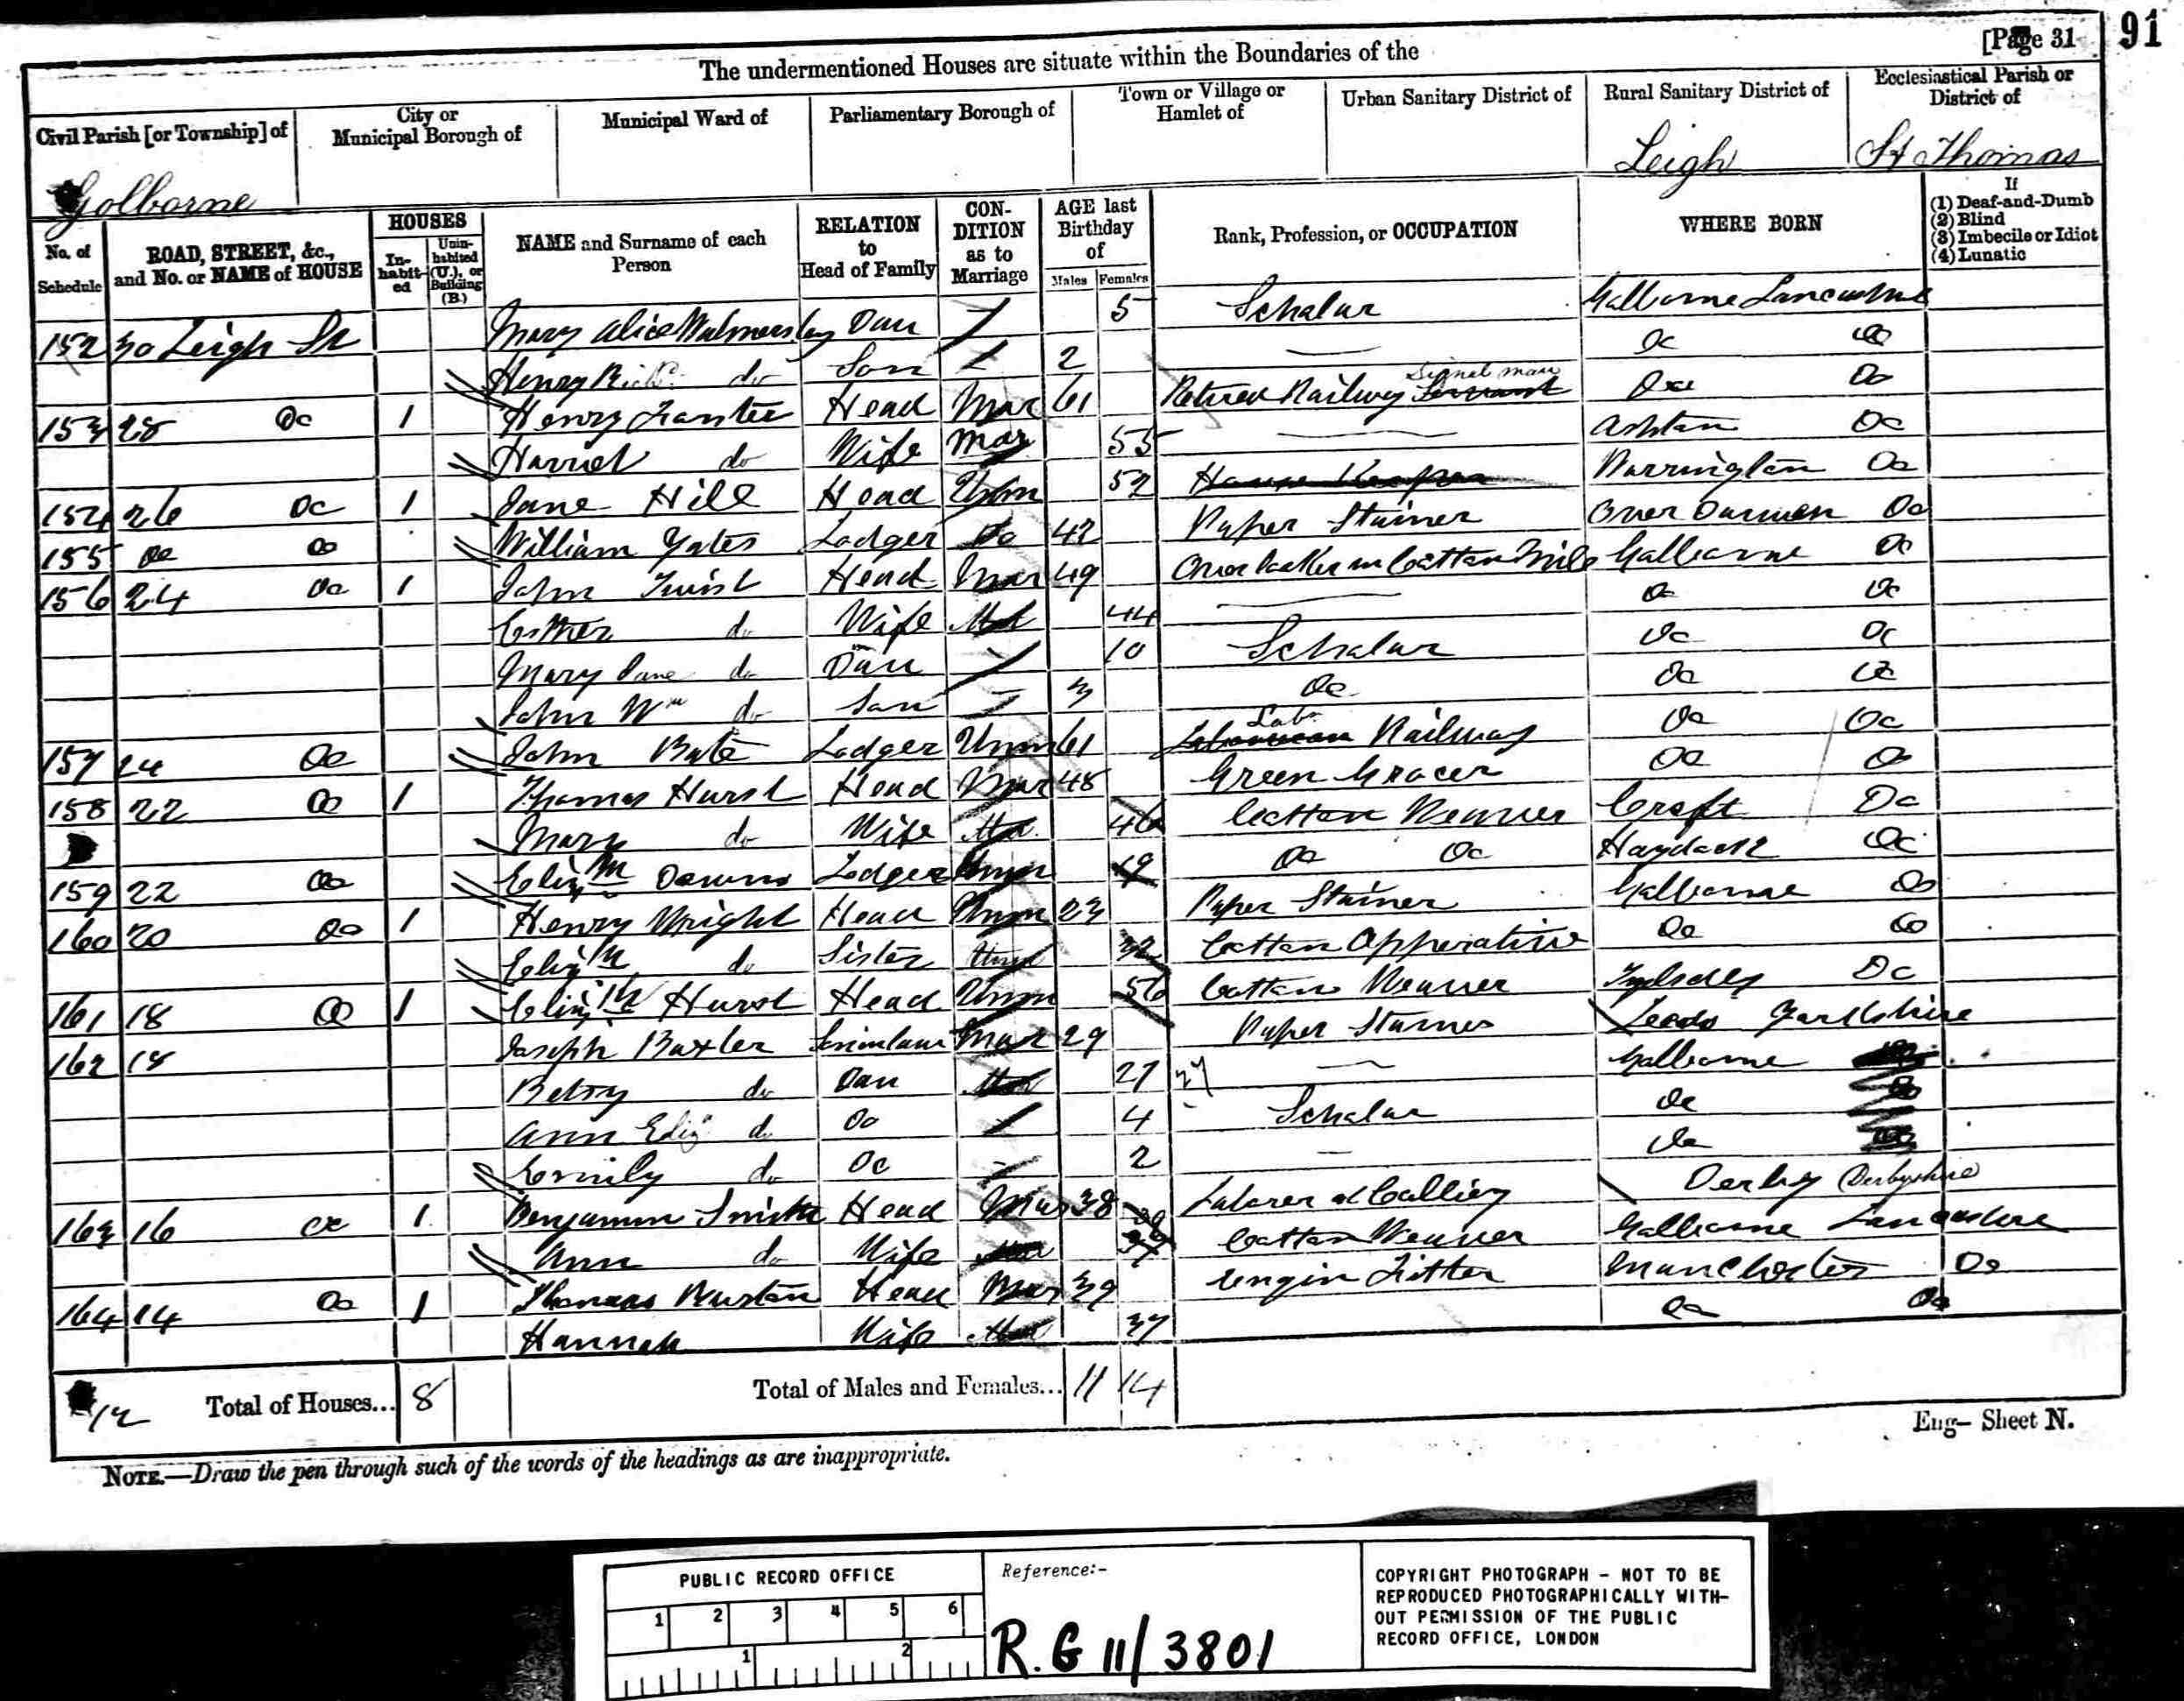 [Page 31 91
The undermentioned Houses are situate within the Boundaries of the
Civil Parish [or Township] of City or Municipal Borough of Municipal Ward of Parliamentary Borough of Town or Village or Hamlet of Urban Sanitary District of Rural Sanitary District of Ecclesiastical Parish or District of
Golborne Leigh St Thomas
No. of Schedule ROAD, STREET, &c., and No. or NAME of HOUSE HOUSES Inhabited Uninhabited (U.), or Building (B.) NAME and Surname of each Person RELATION to Head of Family CONDITION as to Marriage AGE last Birthday of Males Females Rank, Profession, or OCCUPATION WHERE BORN If (1) Deaf-and-Dumb (2) Blind (3) Imbecile or Idiot (4) Lunatic
152 30 Leigh St Mary Alice Walmersley Dau 5 Scholar Golborne Lancashire
Henry do Son 2 Do Do
153 28 Do 1 Henry Head Mar 61 Retired Railway Signal man Do Do
Harriet do Wife Mar 55 Ashton Do
154 26 Do 1 Jane Hill Head Unm 52 House Keeper Warrington Do
155 Do Do William Yates Lodger Do 42 Paper Stainer Over Darwen Do
156 24 Do 1 John Twist Head Mar 49 Over looker in Cotton Mill Golborne Do
Esther do Wife Mar 44 Do Do
Mary Jane do Dau 10 Scholar Do Do
John Wm do Son 3 Do Do Do
157 24 Do John Bate Lodger Unm 61 Labr Railway Do Do
158 22 Do 1 Thomas Hurst Head Mar 48 Green Grocer Do Do
Mary do Wife Mar 46 Cotton Weaver Croft Do
159 22 Do Elizth Lodger Unm 19 Do Do Haydock Do
160 20 Do 1 Henry Wright Head Unm 23 Paper Stainer Golborne Do
Elizth do Sister Unm 32 Cotton Opperative Do Do
161 18 Do 1 Elizth Hurst Head Unm 56 Cotton Weaver Tyldsley Do
162 18 Joseph Baxter Soninlaw Mar 29 Paper Stainer Leeds Yorkshire
Betsy do Dau Mar 27 27 Golborne
Ann Eliz do Do 4 Scholar Do
Emily do Do 2 Do
163 16 Do 1 Benjamin Smith Head Mar 38 Laborer at Colliery Derby Derbyshire
Ann do Wife Mar Cotton Weaver Golborne Lancashire
164 14 Do 1 Thomas Head Mar 39 Engin Fitter Manchester Do
Hannah Wife Mar 37 Do Do
12 Total of Houses... 8 Total of Males and Females... 11 14
Eng— Sheet N.
NOTE.—Draw the pen through such of the words of the headings as are inappropriate.
PUBLIC RECORD OFFICE
1 2 3 4 5 6
1 2
Reference:-
R.G 11/3801
COPYRIGHT PHOTOGRAPH - NOT TO BE
REPRODUCED PHOTOGRAPHICALLY WITH-
OUT PERMISSION OF THE PUBLIC
RECORD OFFICE, LONDON